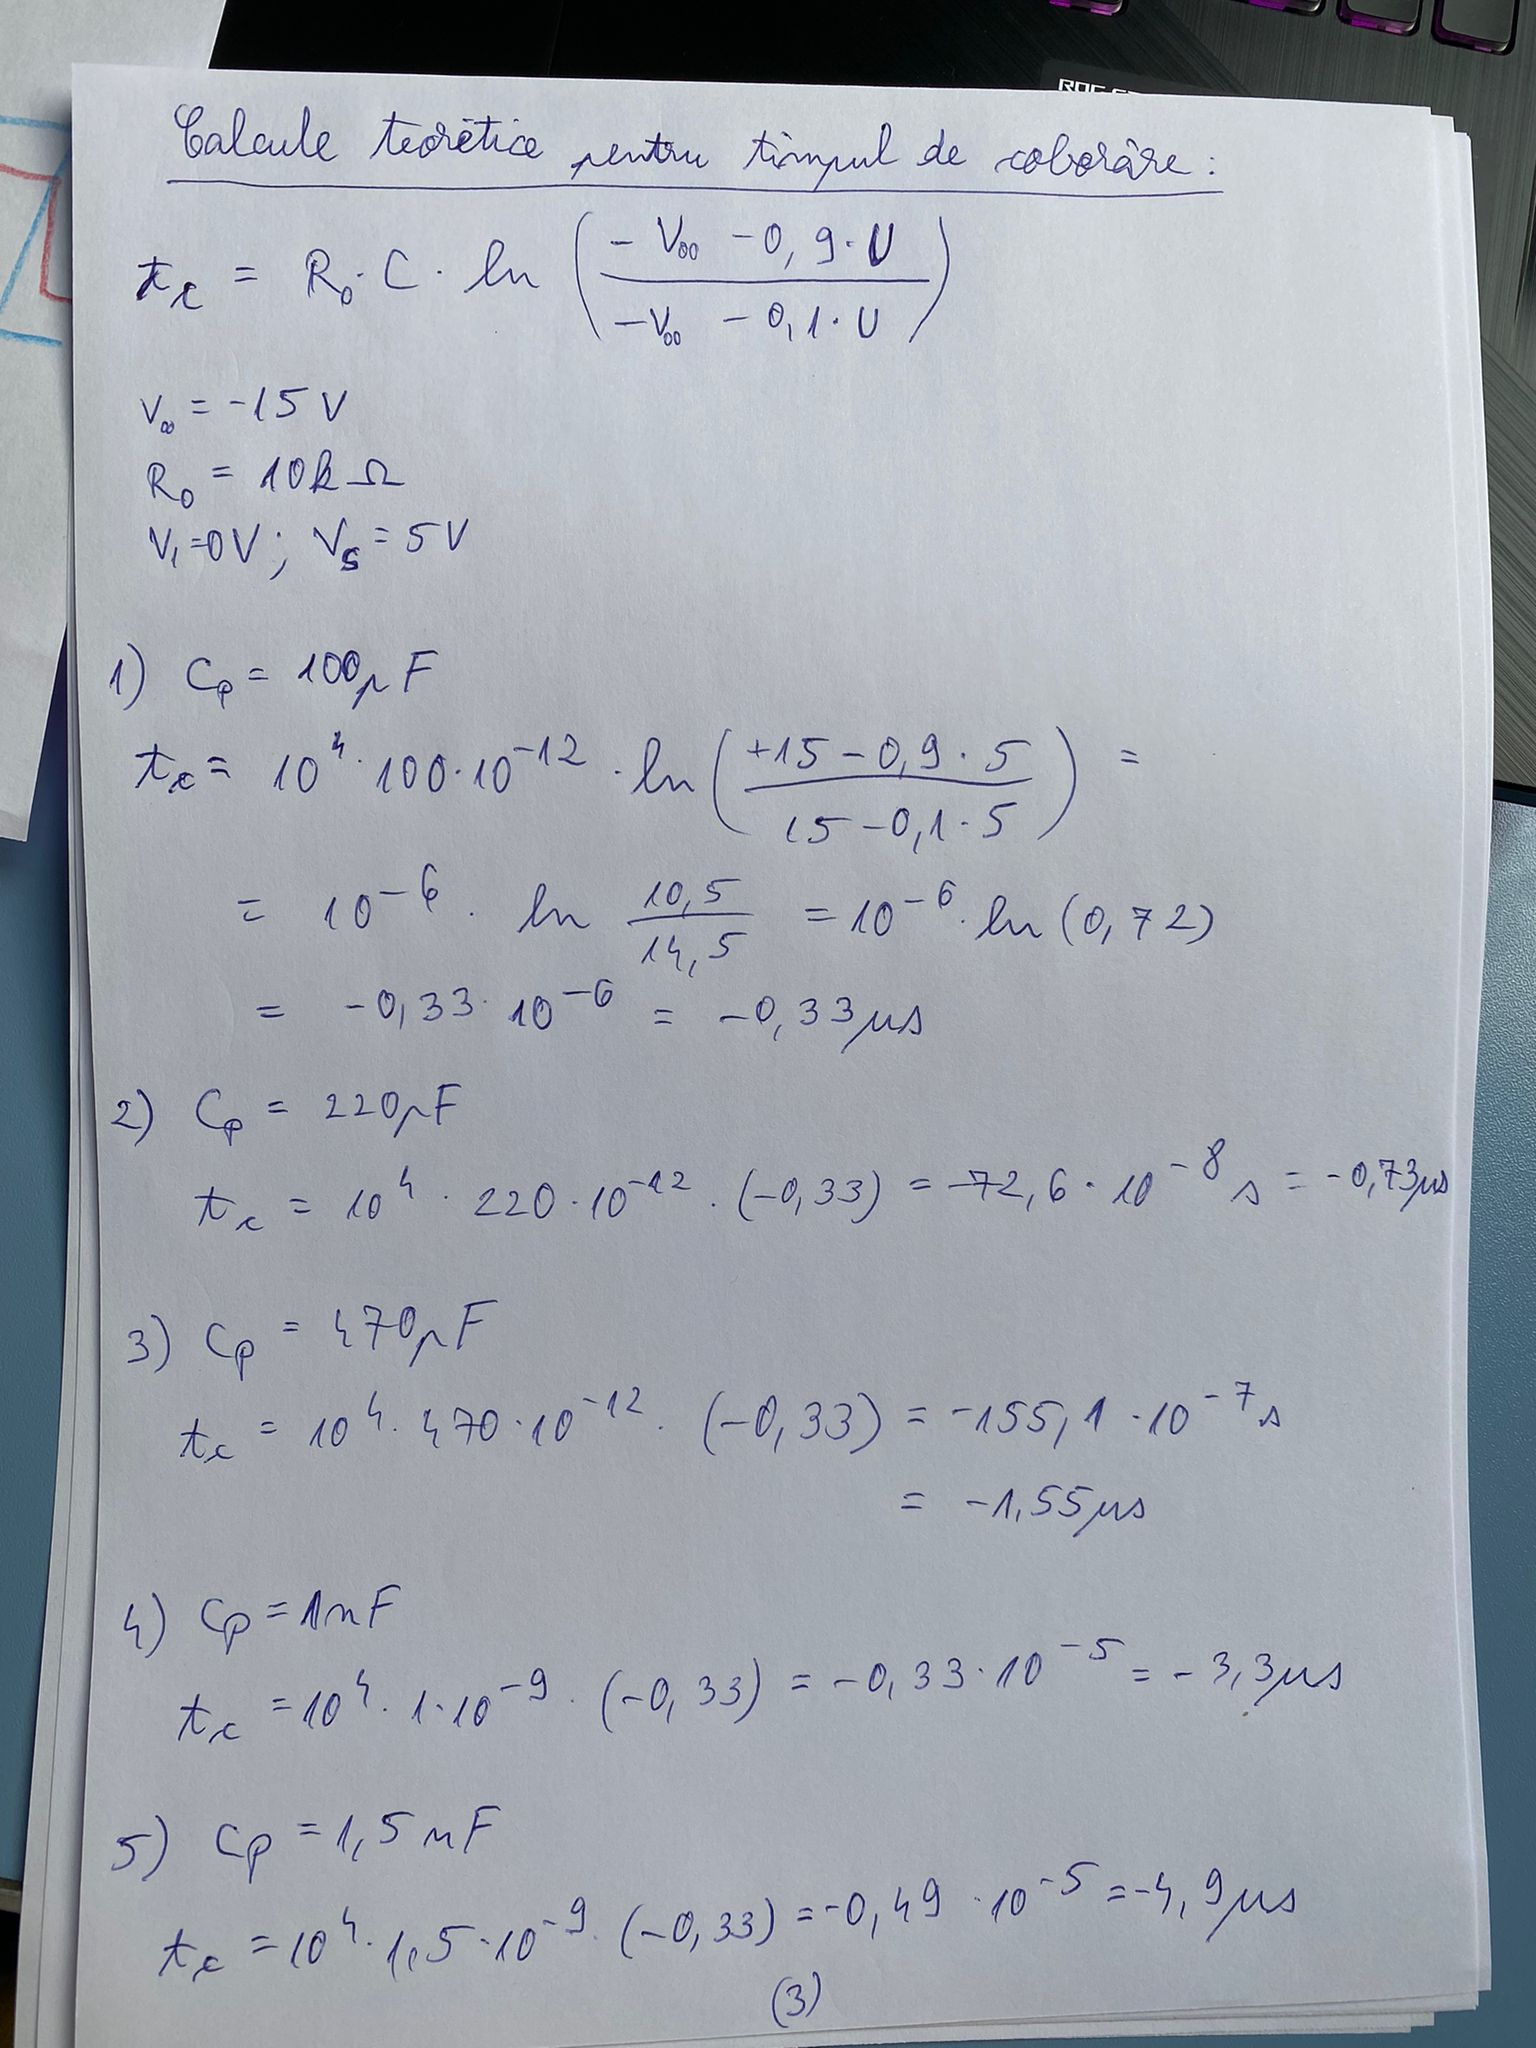 Calcule teoretice pentru timpul de coborâre:
tc = R₀·C·ln((-V∞ -0,9·U)/(-V∞ -0,1·U))
V∞ = -15V
R₀ = 10kΩ
V₁=0V; Vs=5V
1) Cp = 100pF
tc = 10⁴·100·10⁻¹²·ln((+15-0,9·5)/(15-0,1·5)) =
= 10⁻⁶·ln 10,5/14,5 = 10⁻⁶·ln(0,72)
= -0,33·10⁻⁶ = -0,33μs
2) Cp = 220pF
tc = 10⁴·220·10⁻¹²·(-0,33) = -72,6·10⁻⁸s = -0,73μs
3) Cp = 470pF
tc = 10⁴·470·10⁻¹²·(-0,33) = -155,1·10⁻⁷s
= -1,55μs
4) Cp = 1nF
tc = 10⁴·1·10⁻⁹·(-0,33) = -0,33·10⁻⁵ = -3,3μs
5) Cp = 1,5nF
tc = 10⁴·1,5·10⁻⁹·(-0,33) = -0,49·10⁻⁵ = -4,9μs
(3)